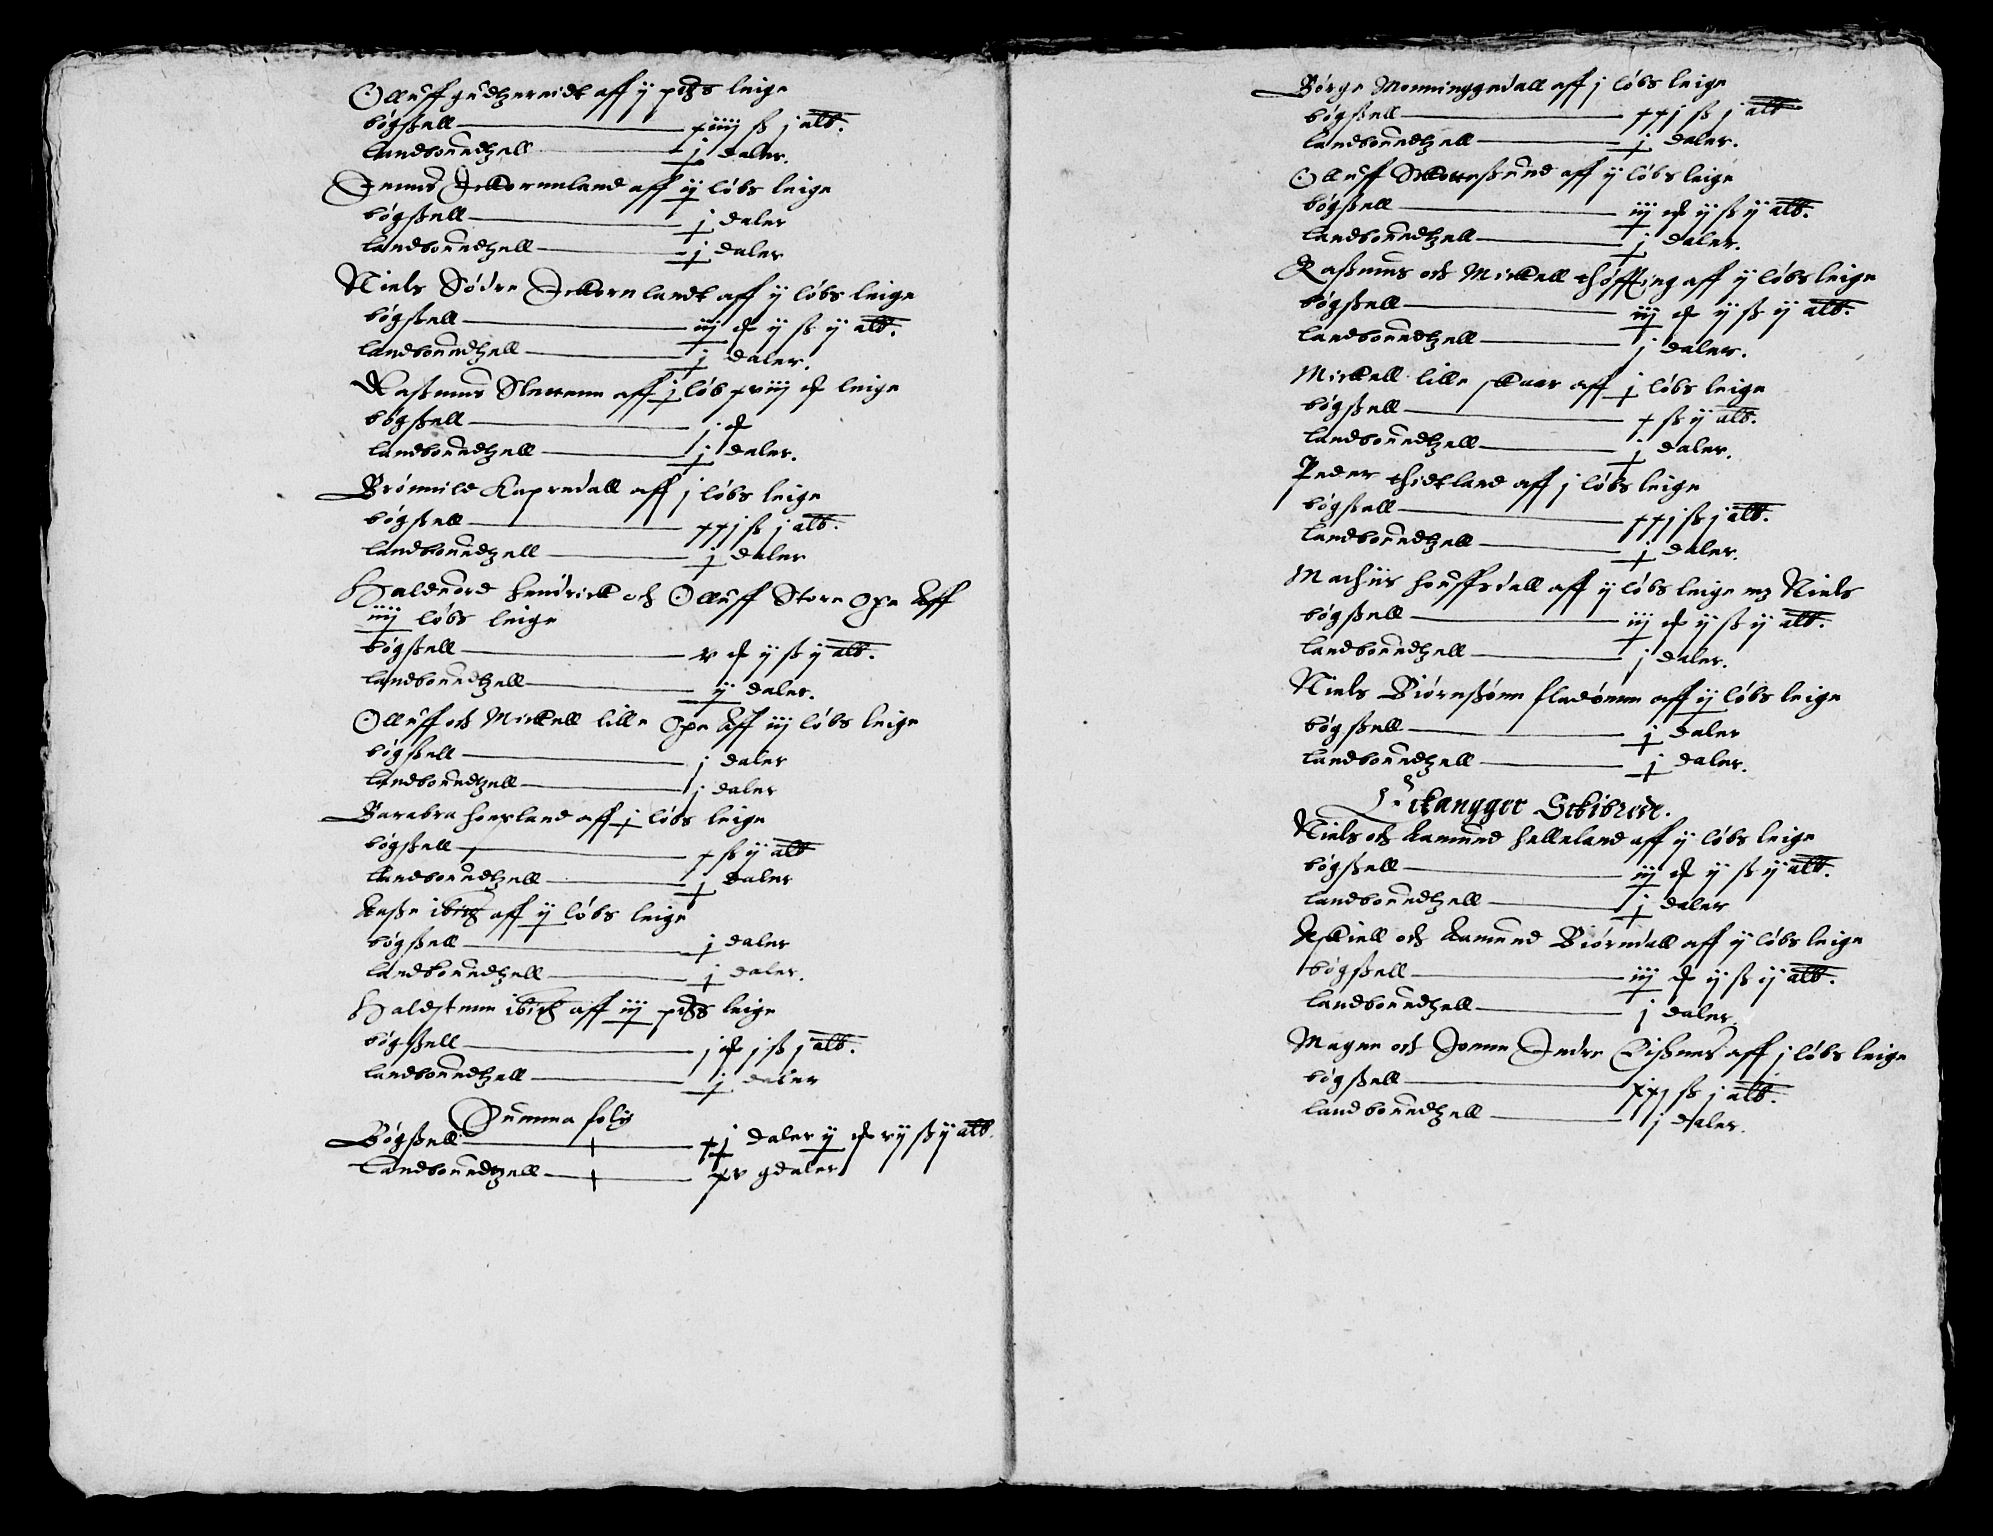 Olluff gudtzereidt aff ij pdtzs leige
bögßell xiiij ß j alb.
landboeredtzell j daler.
Jenns Jckornnland aff ij löbs leige
bögßell j daler
landboeredtzell j daler
Niels Södre Jckornlandt aff ij löbs leige
bögßell iij ort ij ß ij alb.
landboeredtzell j daler.
Raßmus Slettenn aff j löb xviij leige
bögßell j ort
landboeredtzell j daler.
Brönnild Kapredall aff j löbs leige
bögßell xxj ß j alb.
landboeredtzell j daler
Halduord hendrick och Olluff Store Ope Aff
iiij löbs leige
bögßell v ort ij ß ij alb.
landboeredtzell ij daler.
Olluff och Mickell lille Ope Aff iij löbs leige
bögßell j daler
landboeredtzell j daler
Barabra hopland aff j löbs leige
bögßell x ß ij alb
landboeredtzell j daler
Aaße ibidt aff ij löbs leige
bögßell j daler
landboeredtzell j daler.
Haldstenn ibidt aff iij pdtzs leige
bögßell j ort j ß j alb.
landboeredtzell j daler
Summa foly
Bögßell xj daler ij ort vij ß ij alb.
Landboeredtzell xv gdaler
Börge Monninggedall aff j löbs leige
bögßell xxj ß j alb
landboeredtzell j daler.
Olluff Skotteßund aff ij löbs leige
bögßell iij ort ij ß ij alb.
landboeredtzell j daler.
Raßmus och Mickell aff ij löbs leige
bögßell iij ort ij ß ij alb.
landboeredtzell j daler.
Mickell lille skaar aff j löbs leige
bögßell x ß ij alb.
landboeredtzell j daler.
Peder thidtland aff j löbs leige
bögßell xxj ß j alb.
landboeredtzell j daler.
Mathiis houffsdall aff ij löbs leige Niels
bögßell iij ort ij ß ij alb.
landboeredtzell j daler.
Niels Biörnßönn fladönn aff ij löbs leige
bögßell j daler
landboeredtzell j daler.
Eikangger Sckibrede.
Niels och Aamund helleland aff ij löbs leige
bögßell iij ort ij ß ij alb.
landboeredtzell j daler
Askiell och Aamund Biörndall aff ij löbs leige
bögßell iij ort ij ß ij alb.
landboeredtzell j daler
Magne och Jonn Indre Eißnes aff j löbs leige
bögßell xxj ß j alb.
landboeredtzell j daler.